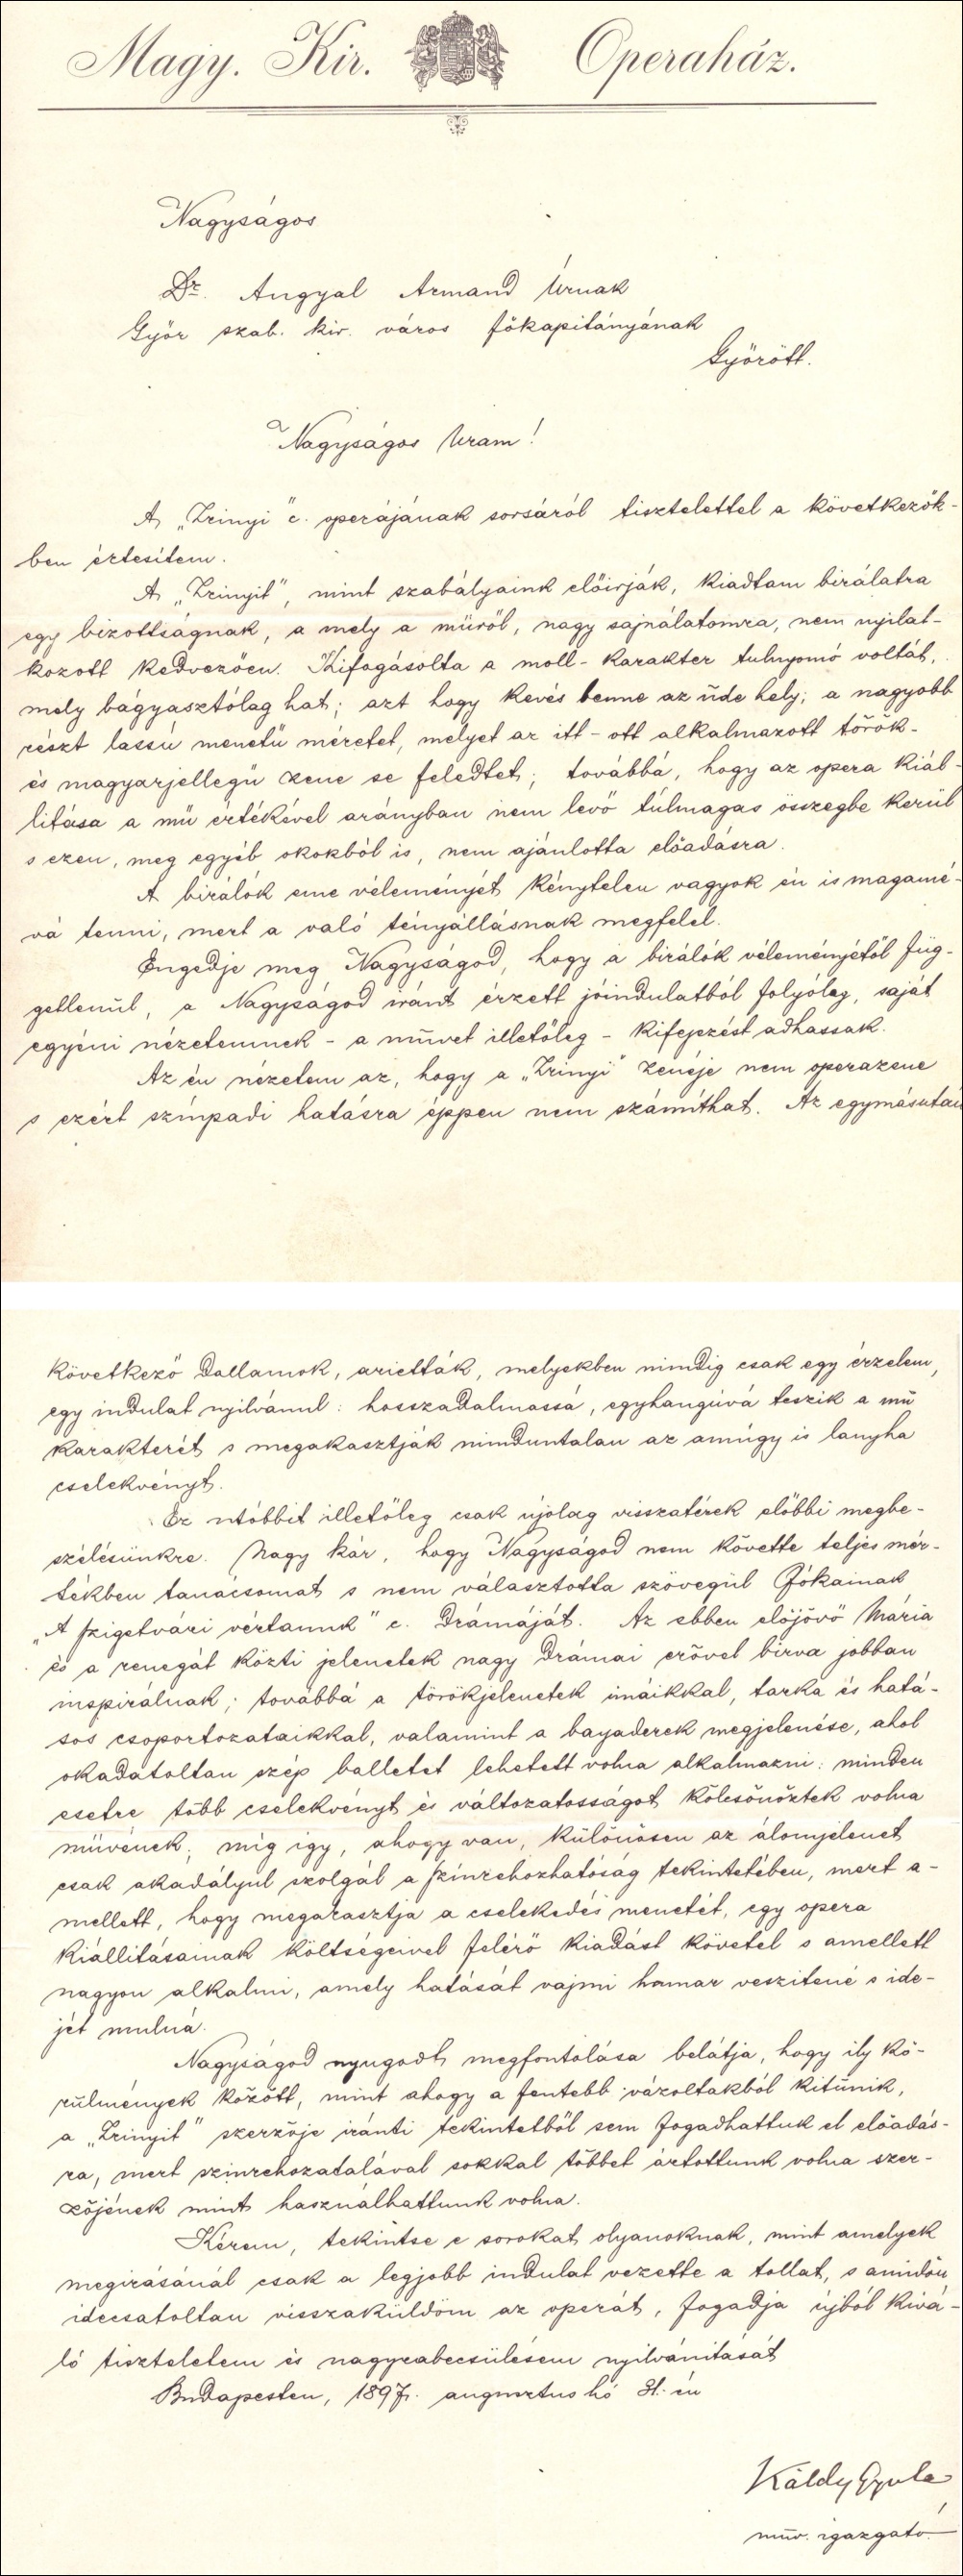 Magy. Kir. Operaház.
Nagyságos
Dr. Angyal Armand Úrnak
Győr szab. kir. város főkapitányának
Győrött.
Nagyságos Uram!
A „Zrinyi" c. operájának sorsáról tisztelettel a következők-
ben értesítem.
A „Zrinyit", mint szabályaink előirják, kiadtam birálatra
egy bizottságnak, a mely a műről, nagy sajnálatomra, nem nyilat-
kozott kedvezően. Kifogásolta a moll-karakter tulnyomó voltát,
mely bágyasztólag hat; azt hogy kevés benne az üde hely; a nagyobb
részt lassú menetű méretet, melyet az itt-ott alkalmazott török-
és magyarjellegű zene se feledtet; továbbá, hogy az opera kiál-
litása a mű értékével arányban nem levő túlmagas összegbe kerül
s ezen, meg egyéb okokból is, nem ajánlotta előadásra.
A birálók eme véleményét kénytelen vagyok én is magamé-
vá tenni, mert a való tényállásnak megfelel.
Engedje meg Nagyságod, hogy a birálók véleményétől füg-
getlenül, a Nagyságod iránt érzett jóindulatból folyólag, saját
egyéni nézetemnek - a művet illetőleg - kifejezést adhassak.
Az én nézetem az, hogy a „Zrinyi" zenéje nem operazene
s ezért színpadi hatásra éppen nem számíthat. Az egymásután
következő dallamok, arietták, melyekben mindig csak egy érzelem,
egy indulat nyilvánul: hosszadalmassá, egyhangúvá teszik a mű
karakterét s megakasztják minduntalan az amúgy is lanyha
cselekvényt.
Ez utóbbit illetőleg csak újolag visszatérek előbbi megbe-
szélésünkre. Nagy kár, hogy Nagyságod nem követte teljes mér-
tékben tanácsomat s nem választotta szövegül Jókainak
„A szigetvári vértanuk" c. drámáját. Az ebben előjövő Mária
és a renegát közti jelenetek nagy drámai erővel birva jobban
inspirálnak; továbbá a törökjelenetek imáikkal, tarka és hatá-
sos csoportozataikkal, valamint a bayaderek megjelenése, ahol
okadatoltan szép balletet lehetett volna alkalmazni: minden
esetre több cselekvényt és változatosságot kölcsönöztek volna
művének; míg így, ahogy van, különösen az álomjelenet
csak akadályul szolgál a szinrehozhatóság tekintetében, mert a-
mellett, hogy megakasztja a cselekedés menetét, egy opera
kiállitásainak költségeivel felérő kiadást követel s amellett
nagyon alkalmi, amely hatását vajmi hamar veszitené s ide-
jét mulná.
Nagyságod nyugodt megfontolása belátja, hogy ily kö-
rülmények között, mint ahogy a fentebb vázoltakból kitűnik,
a „Zrinyit" szerzője iránti tekintetből sem fogadhattuk el előadás-
ra, mert szinrehozatalával sokkal többet ártottunk volna szer-
zőjének mint használhattunk volna.
Kérem, tekintse e sorokat olyanoknak, mint amelyek
megirásánál csak a legjobb indulat vezette a tollat, s amidőn
idecsatoltan visszaküldöm az operát, fogadja újból kivá-
ló tiszteletem és nagyrabecsülésem nyilvánitását
Budapesten, 1897. augusztus hó 31.-én
Káldy Gyula
műv. igazgató.